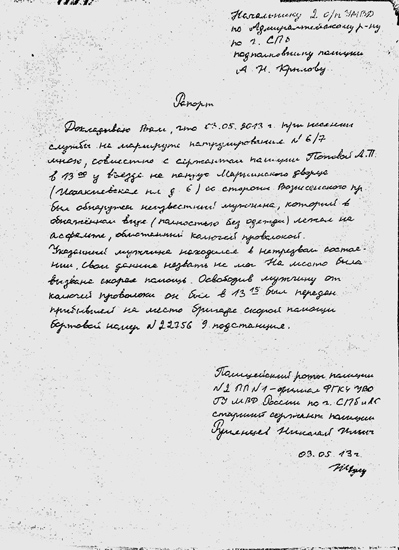 Начальнику 2 о/п УМВД
по Адмиралтейскому р-ну
по г. СПб
подполковнику полиции
А. Н. Крылову
Рапорт
Докладываю Вам, что 03.05.2013 г. при несении
службы на маршруте патрулирования № 6/7
мною, совместно с сержантом полиции Поповой А.П.
в 13 00 у въезда на парковку Мариинского дворца
(Исаакиевская пл д 6) со стороны Вознесенского пр.
был обнаружен неизвестный мужчина, который в
обнажённом виде (полностью без одежды) лежал на
асфальте, обмотанный колючей проволокой.
Указанный мужчина находился в нетрезвом состоя-
нии. Свои данные назвать не мог. На место была
вызвана скорая помощь. Освободив мужчину от
колючей проволоки он был в 13 15 был передан
прибывшей на место бригаде скорой помощи
бортовой номер N22756 9 подстанция.
Полицейский роты полиции
N2 ПП N1-филиал ФГКУ УВО
ГУ МВД России по г. СПб и ЛО
старший сержант полиции
Румянцев Николай Ильич
03.05.13г.